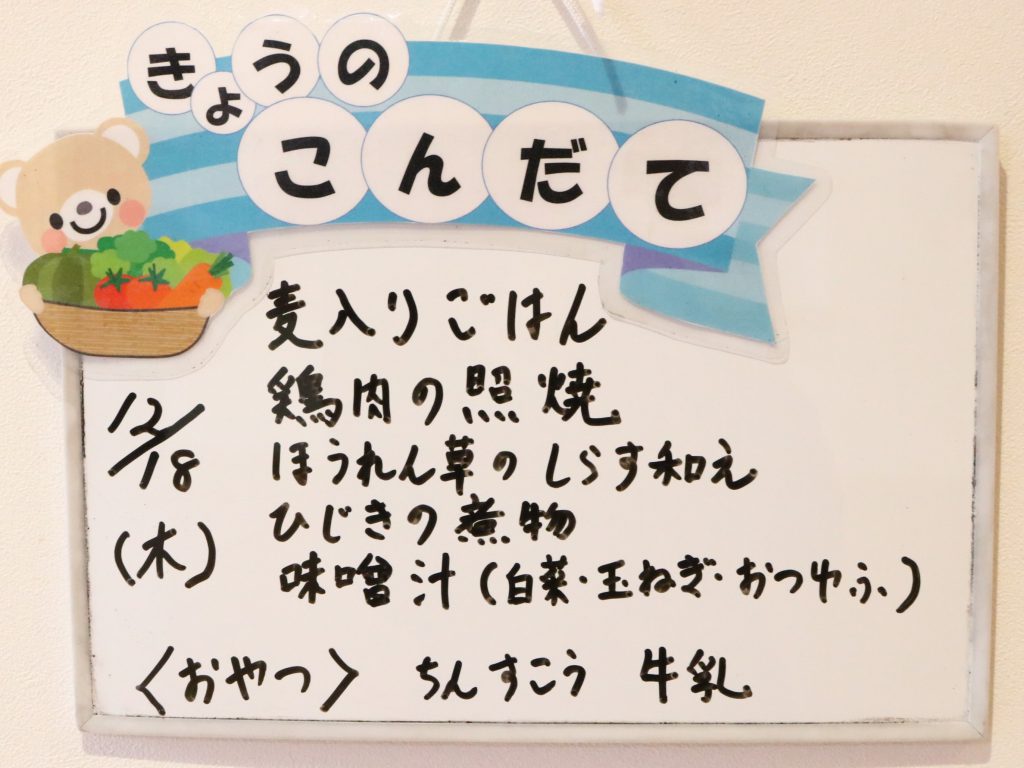 きょうの
こんだて
麦入りごはん
12/18
鶏肉の照焼
ほうれん草のしらす和え
(木)
ひじきの煮物
味噌汁(白菜・玉ねぎ・おつゆふ)
〈おやつ〉 ちんすこう 牛乳